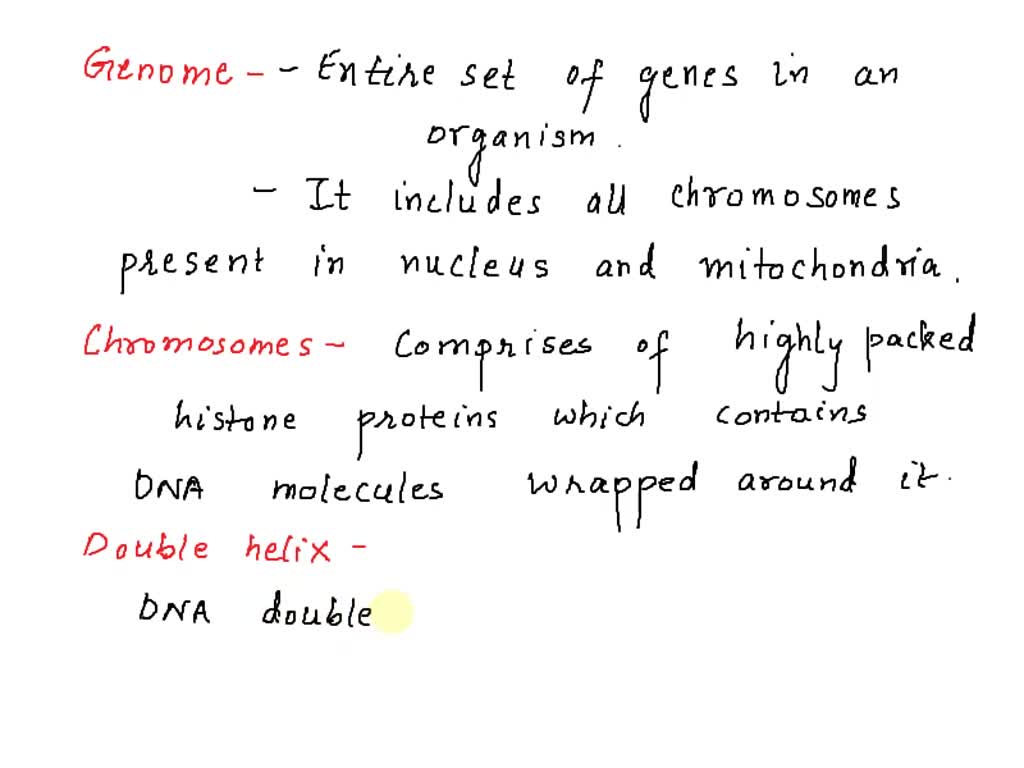 Genome - - Entire set of genes in an
organism.
- It includes all chromosomes
present in nucleus and mitochondria.
Chromosomes - Comprises of highly packed
histone proteins which contains
DNA molecules wrapped around it.
Double helix -
DNA double